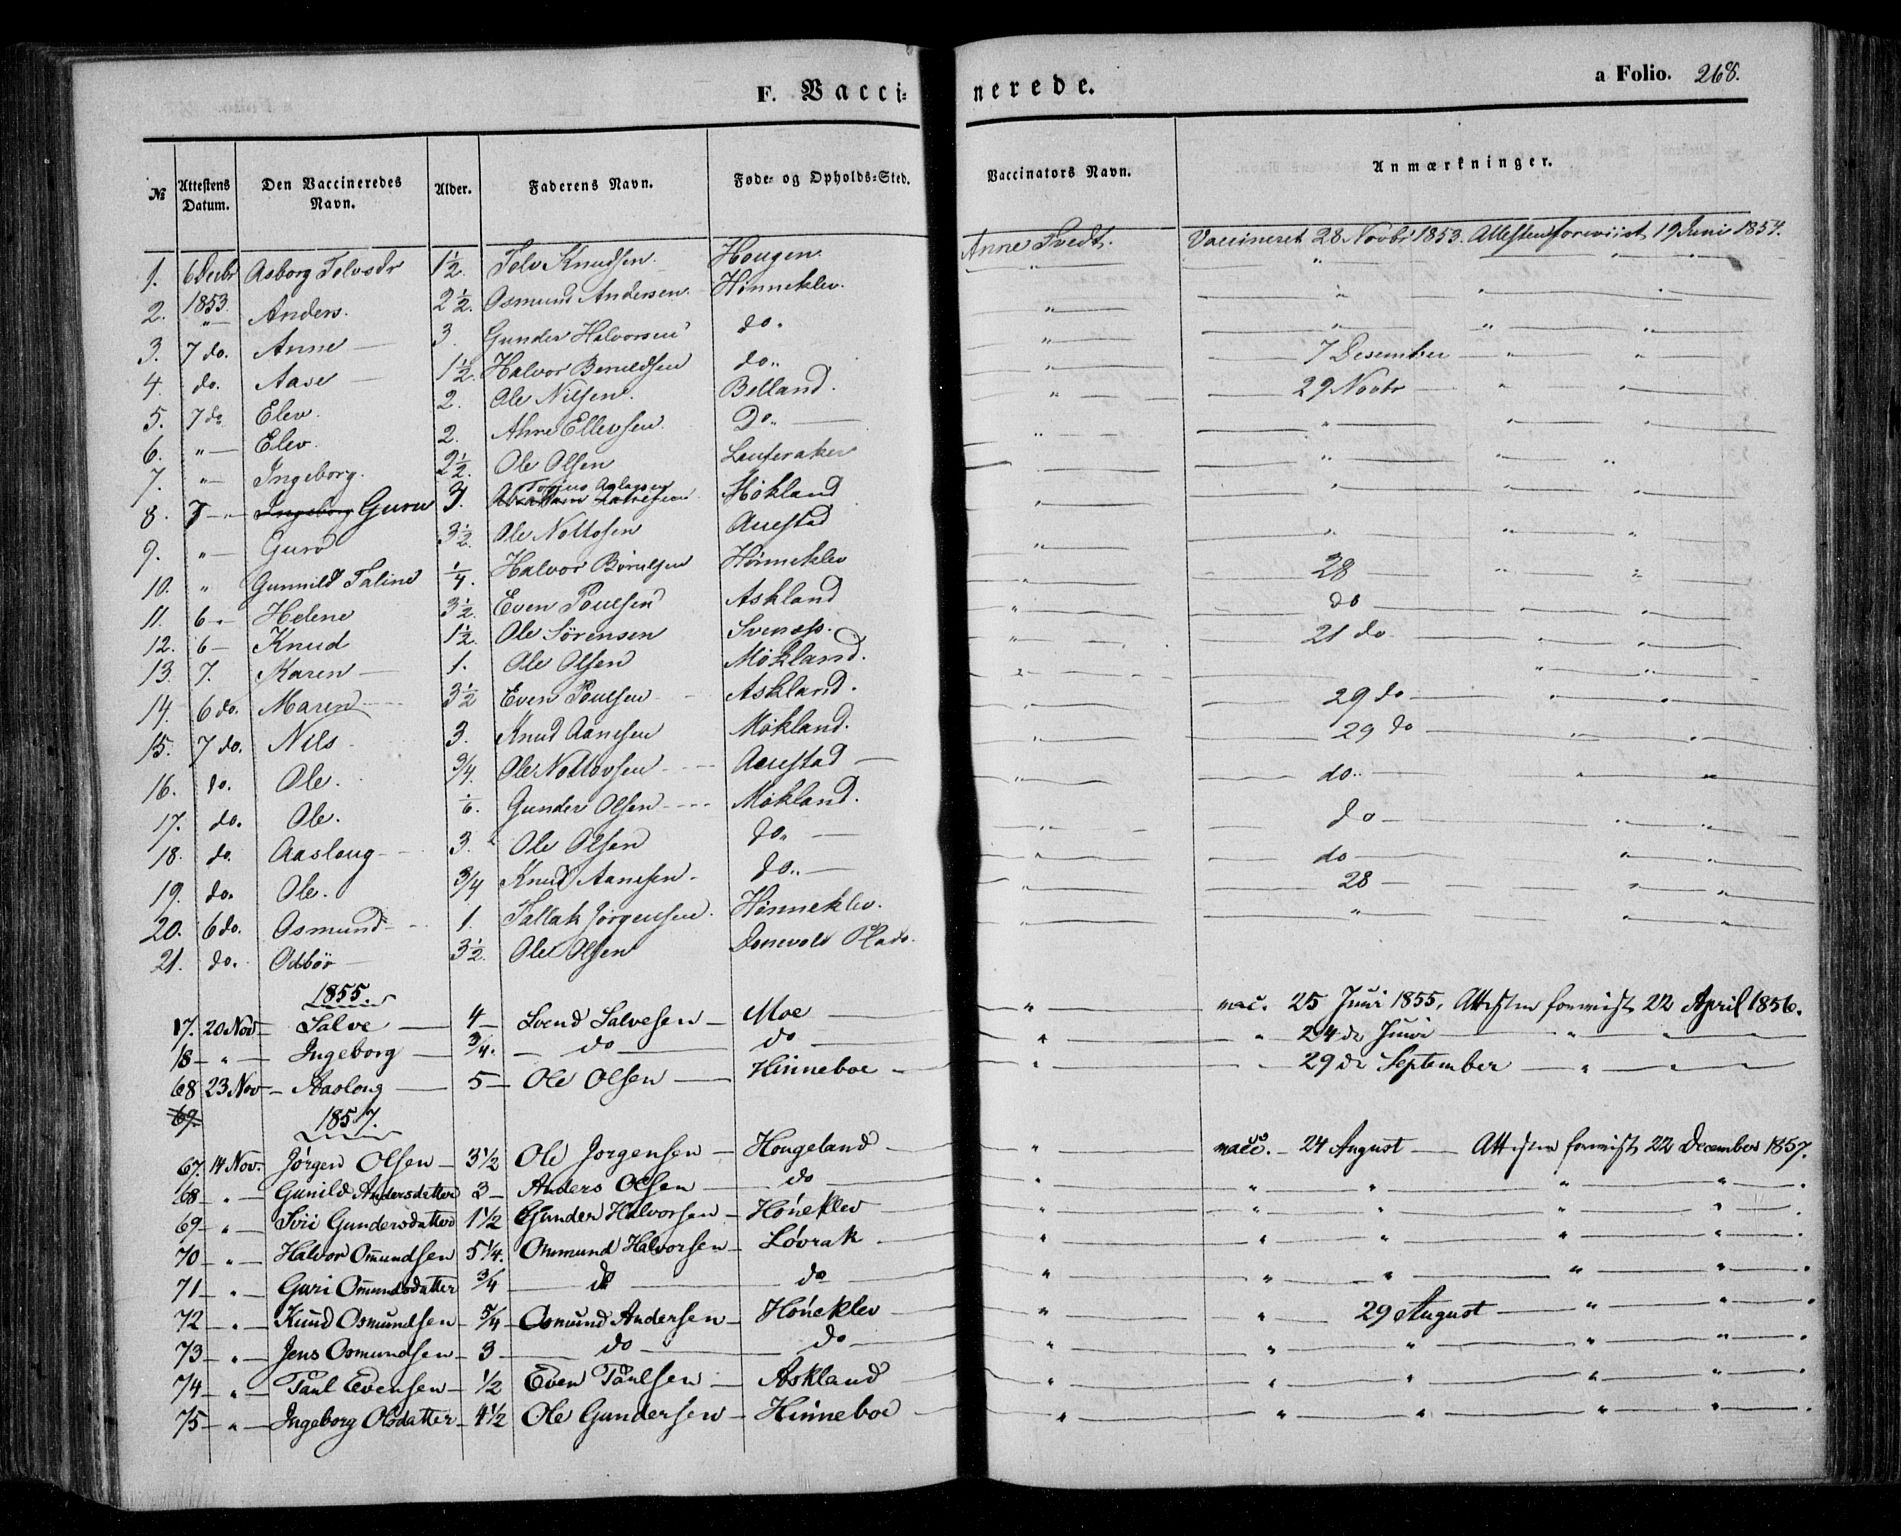 F. Vacci- nerede. a Folio. 268.
№ Attestens Datum. Den Vaccineredes Navn. Alder. Faderens Navn. Føde- og Opholds-Sted. Vaccinators Navn. Anmærkninger.
1. 6 Decbr Asborg Telvsdr 1½ Telv Knudsen Hougen Anne Tvedt. Vaccineret 28 Novbr 1853. Attesten foreviist 19 Juni 1854.
2. 1853. " Anders. 2½. Osmund Andersen. Hinneklev. " "
3. 7 do. Anne 3. Gunder Halvorsen do. " "
4. do. Aase 1½. Halvor do. " 7 Desember " "
5. 7 do Elev. 2. Ole Nilsen. Belland. " 29 Novbr " "
6. " Elev. 2. Ahne Ellevsen Do. " " "
7. " Ingeborg. 2½. Ole Olsen " " "
8. 7 " Ingeborg Guru 3. Torjus Aslagsen Møkland " " "
9. " Guro 3½. Ole Nottosen Auestad " " "
10. " Gunnild Taline ¼ Halvor Hinneklev " 28 " "
11. 6 " Helene 3½. Even Poulsen Askland " do
12. 6 Knud 1½. Ole Sørensen " 21 do
13. 7. Karen 1. Ole Olsen Møkland. " " "
14. 6 do. Maren 3½ Even Poulsen Askland. " 29 do " "
15. 7 do. Nils. 3. Knud Aanesen Møkland. " 29 do " "
16. do. Ole. ¾. Ole Nottovsen Auestad " do. " "
17. do. Ole. ⅙. Gunder Olsen Møkland. " do " "
18. do. Aasloug 3. Ole Olsen do. " do " "
19. do. Ole. ¾ Knud Aanesen do. " 28 " "
20. 6 do. Osmund 1. Tallak Jørgensen. Hinneklev. " " " "
21. do. Odbør 3½. Ole Olsen Plads.
1855.
17. 20 Nov Salve 4 Svend Salvesen Moe " vac. 25 Juni 1855, Attesten forevist 22 April 1856.
18 " Ingeborg ¾. do do " " 24 de Juni " "
68 23 Nov Aasloug 5 Ole Olsen Hinneboe " 29 de September " "
69. 1857.
67. 14 Nov. Jørgen Olsen 3½ Ole Jorgensen Hougeland " vacc. 24 August Attesten forevist 22 December 1857.
68 " Gunild Andersdatter 3 Anders Olsen do " " " " "
69 " Siri Gundersdatter 1½ Gunder Halvorsen Hóneklev " " " " "
70 " Halvor Omundsen 5¼. Ommund Halvorsen Lóvrak " " " " "
71 " Guri Omundsdatter ¾ do do " " " " "
72 " Knud Osmundsen 5/4 Osmund Andersen Hóneklev " " 29 August " "
73 " Jens Osmundsen 3 do do " " " " "
74 " Paul Evensen ½ Even Paulsen Askland " " " " "
75 " Ingeborg Olsdatter 4½ Ole Gundersen Hinneboe " " " " "